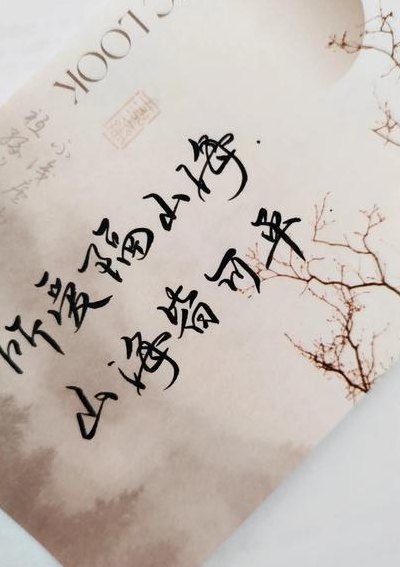 LOOK
所爱隔山海.
山海皆可平